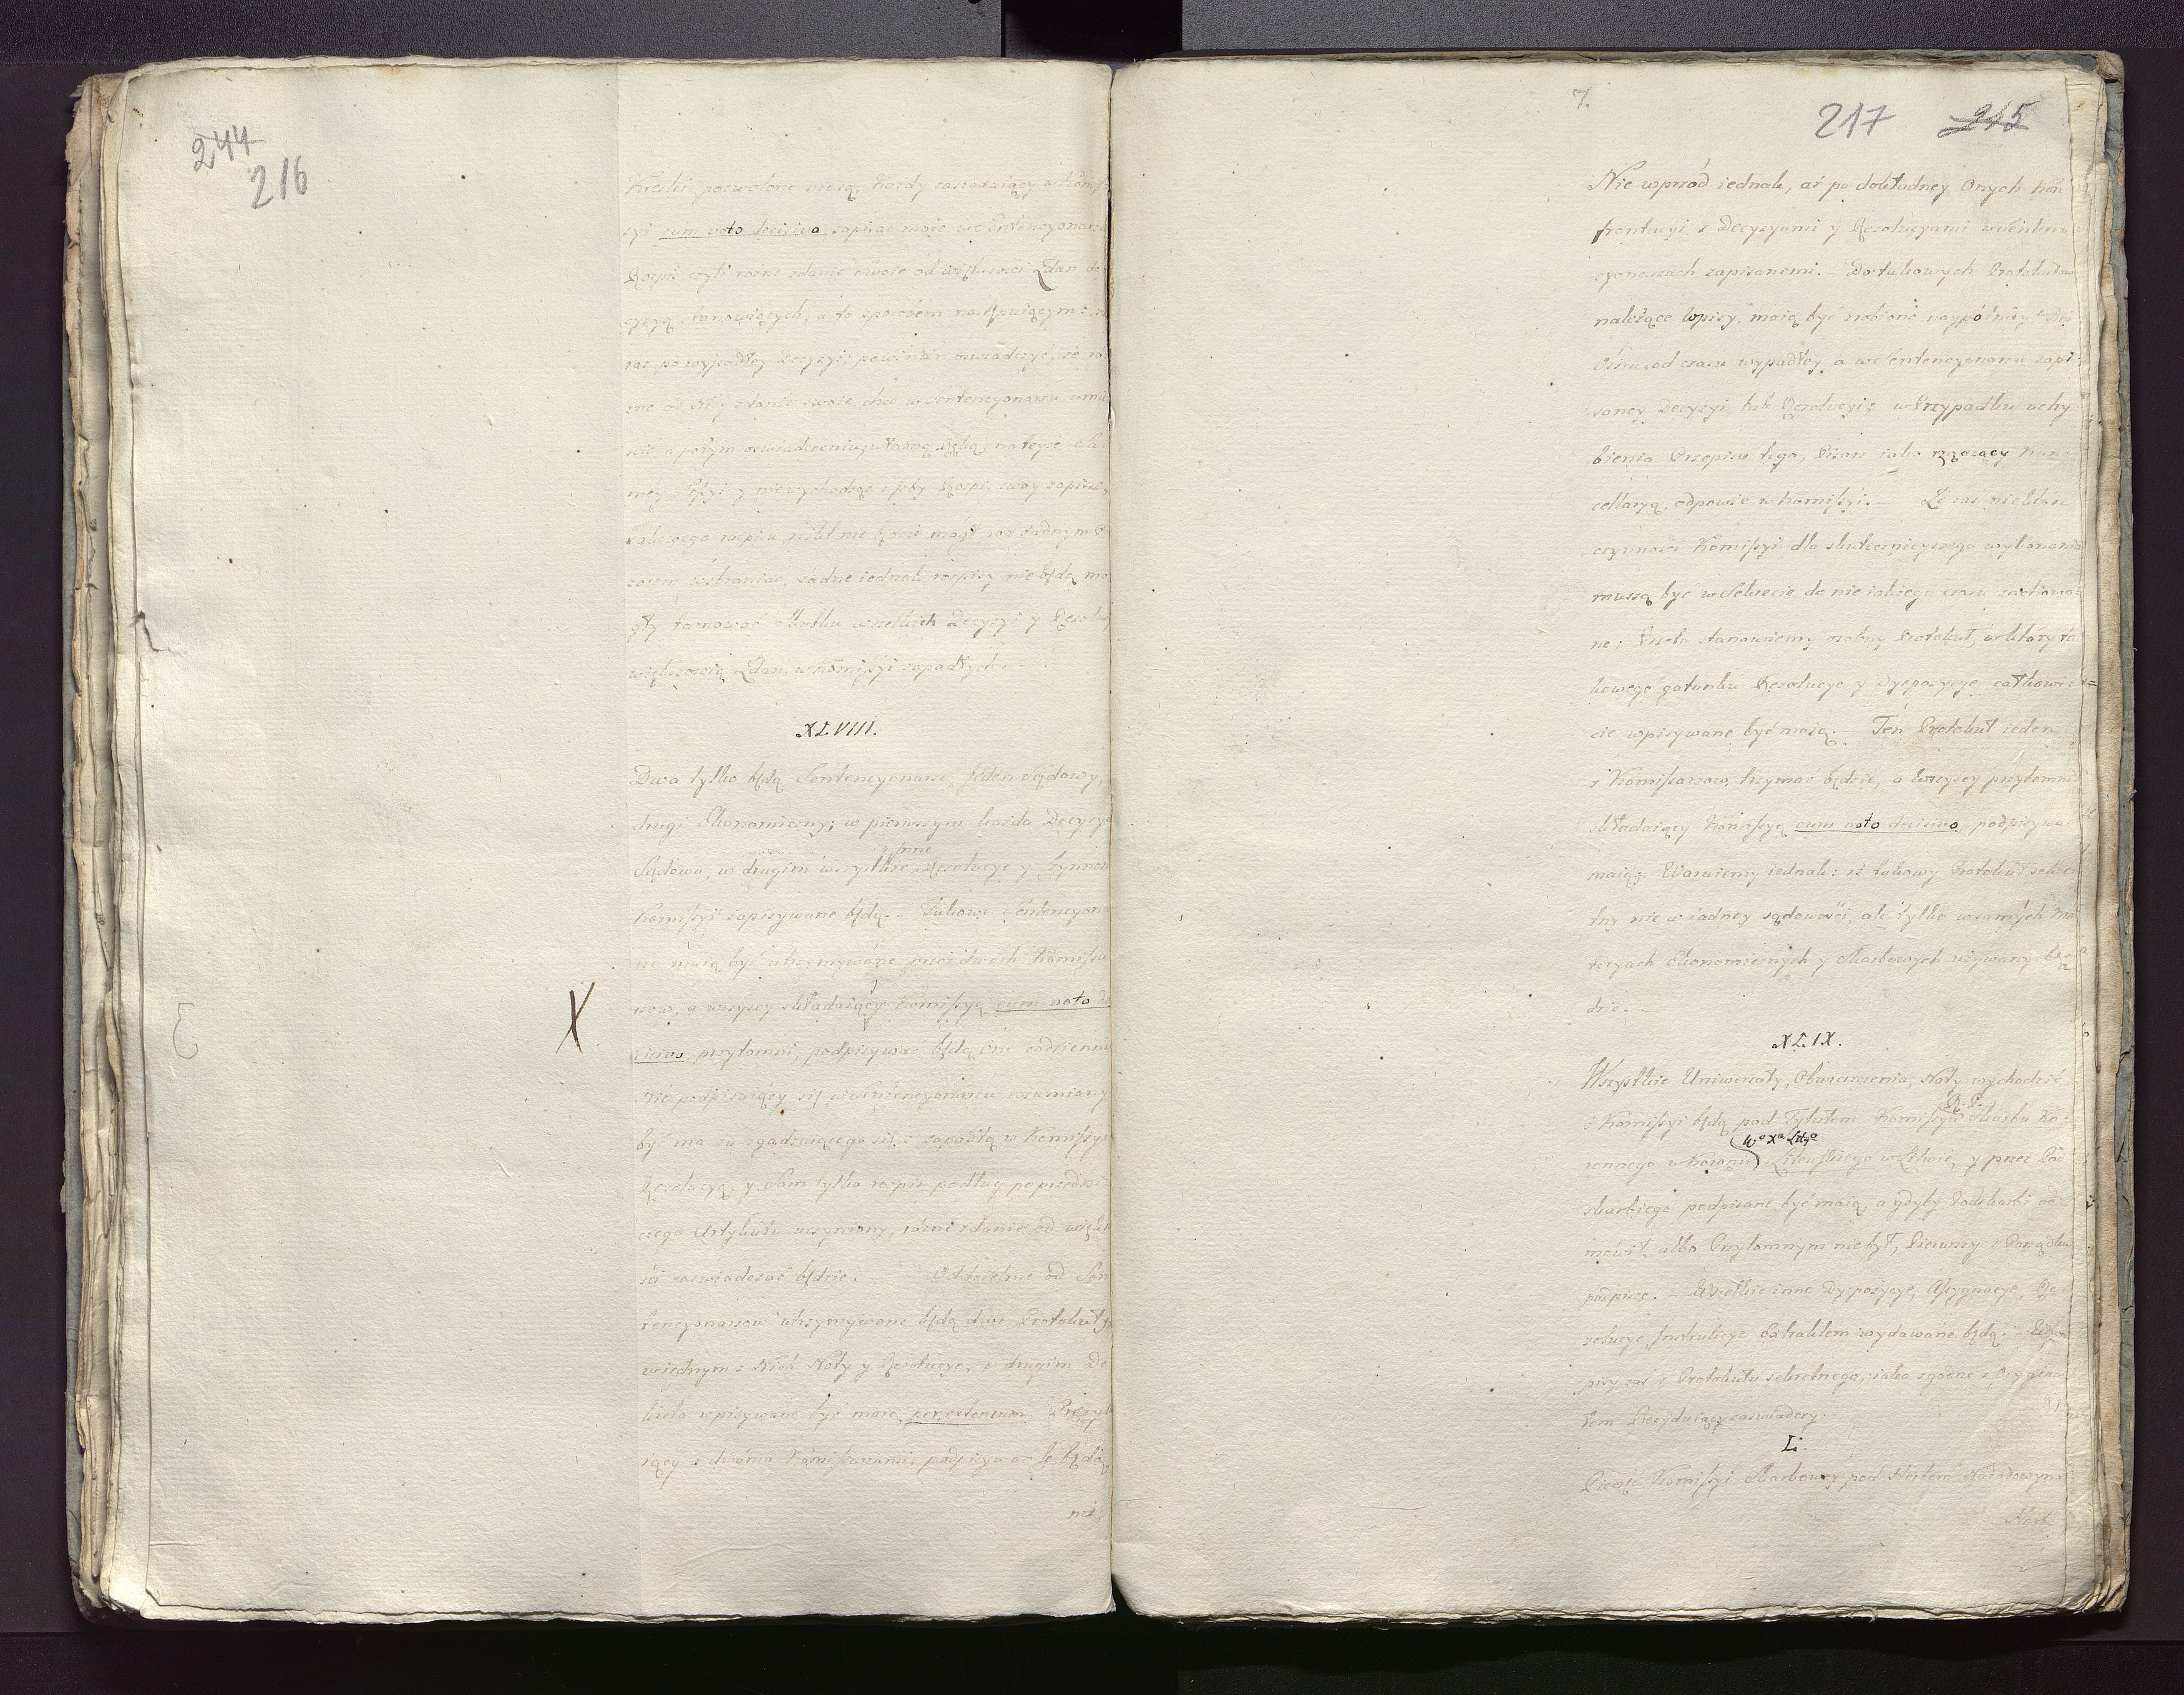 244
216
Kreski pozwolone nie są, Każdy zasiadaiący w Komis
syi cum voto decisivo zapisać może w Sentencyonarzu
Rospis czyli rożne zdanie swoie od większości Zdan de
cyzyą stanowiących, a to sposobem następuiącym: za
raz po wypadłey Decyzyi, powinien oswiadczyć, że ró
żne od Niey zdanie swoie chce w Sentencyonarzu umie
ścić a po tym oswiadczeniu, własną Ręką, na teyże Sa
mey Sessyi y nie wychodząc z Izby Rospis swoy zapisze,
Takowego rospisu, nikt nie będzie mogł pod żadnym Po
zorem wzbraniać, żadne iednak rospisy nie będą mo
gły tamować Skutku wszelkich Decyzyi y Rezolucyi
większością Zdan w Komissyi zapadłych.
XLVIII.
Dwa tylko będą Sentencyonarze, Jeden Sądowy,
drugi Ekonomiczny; w pierwszym każda Decyzya
Sądowa, w drugim wszystkie inne Rezolucye y Czynności
Komissyi zapisywane będą. Takowe Sentencyona
rze maią być utrzymywane przez dwoch Komissa
rzow, a wszyscy składaiący Komissyą cum voto de
cisivo przytomni, podpisywać będą one codziennie
Nie podpisuiący się w Sentencyonarzu rozumiany
być ma za zgadzaiącego się z zapadłą w Komissyi
Rezolucyą, y Sam tylko rospis podług poprzedni
czego Artykułu uczyniony, rożne zdanie od większo
ści zaswiadczać będzie. Oddzielnie od Sen
tencyonarzow utrzymywane będą dwa Protokuły
w iednym z Nich Noty y Rezolucye, w drugim De
kreta wpisywane być maią per extensum, Prezydu
iący z dwóma Komissarzami podpisywać ie będą
ni
X
7.
217 215
Nie wprzód iednak, aż po dokładney Onych kon
frontacyi z Decyzyami y Rezolucyami w Senten
cyonarzach zapisanemi. Do takowych Protokułow
należące Wpisy, maią być zrobione naypóźniey Dni
Ośm, od czasu wypadłey a w Sentencyonarzu zapi
saney Decyzyi lub Rezolucyi; w Przypadku uchy
bienia Przepisu tego, Pisarz iako rządzący Kan
cellaryą, odpowie w Komissyi. Że zas niektóre
czynności Komissyi dla skutecznieyszego wykonania
muszą być w Sekrecie do nieiakiego czasu zachowa
ne; Przeto stanowiemy osobny Protokuł, w który ta
kowego gatunku Rezolucye y Dyspozycye całkowi
cie wpisywane być maią. Ten Protokuł ieden
z Komissarzow trzymać będzie, a Wszyscy przytomni
składaiący Komissyą cum voto decisivo, podpisywać
maią; Waruiemy iednak: iż takowy Protokuł sekre
tny nie w żadney sądowości, ale tylko w samych Ma
teryach Ekonomicznych y Skarbowych używany bę
dzie.
XLIX.
Wszystkie Uniwersały, Obwieszczenia, Noty wychodzić
z Komissyi będą pod Tytułem Komissyi R. P. Skarbu Ko
ronnego w Koronie, Wo Xa Litgo Litewskiego w Litwie, y przez Pod
skarbiego podpisane być maią, a gdyby Podskarbi od
mówił, albo Przytomnym nie był, Pierwszy z Porządku
podpisze. Wszelkie inne Dyspozycye, Assygnacye, Re
zolucye, Instrukcye Extraktem wydawane będą: Wy
pisy zas z Protokułu sekretnego, iako zgodne z Orygina
łem Prezyduiący zaswiadczy.
L.
Pieczęć Komissyi Skarbowey pod Herbem Narodowym
Herb